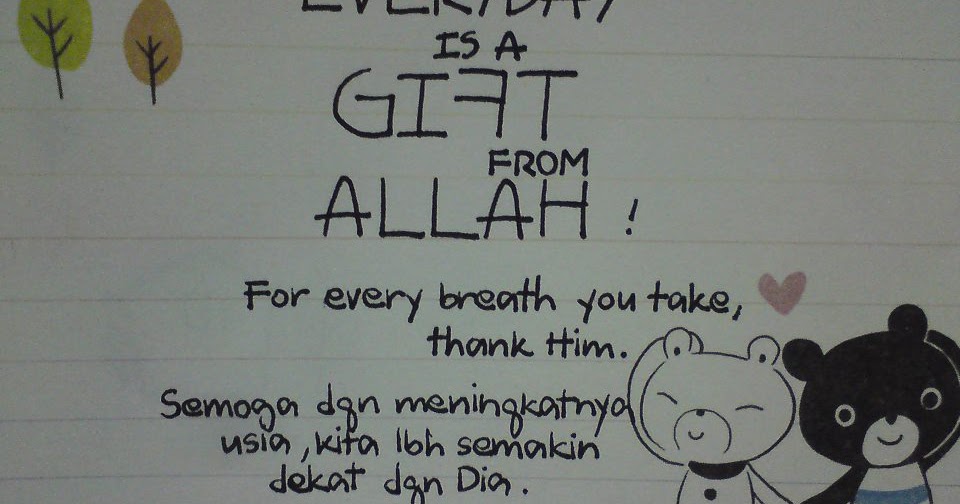 EVERYDAY
IS A
GIFT
FROM
ALLAH !
For every breath you take,
thank Him.
Semoga dgn meningkatnya
usia, kita lbh semakin
dekat dgn Dia.